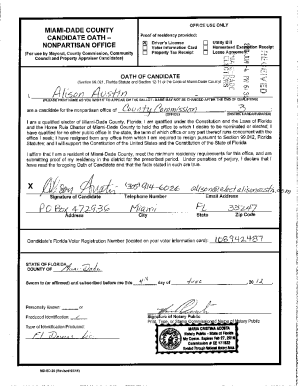 MIAMI-DADE COUNTY
CANDIDATE OATH –
NONPARTISAN OFFICE
(For use by Mayoral, County Commission, Community
Council and Property Appraiser Candidates)
OFFICE USE ONLY
Proof of residency provided:
Driver's License
Voter Information Card
Property Tax Receipt
Utility Bill
Homestead Exemption Receipt
Lease Agreement
RECEIVED
OATH OF CANDIDATE
(Section 99.021, Florida Statute and Section of the Miami-Dade County
I, Alison Austin
PLEASE PRINT NAME AS YOU WISH IT TO APPEAR ON THE BALLOT. NAME MAY NOT BE CHANGED AFTER THE END OF QUALIFYING
am a candidate for the nonpartisan office of County Commission 3
(OFFICE)
I am a qualified elector of Miami-Dade County, Florida. I am qualified under the Constitution and the Laws of Florida
and the Home Rule Charter of Miami-Dade County to hold the office to which I desire to be nominated or elected. I
have qualified for no other public office in the state, the term of which office or any part thereof runs concurrent with the
office I seek; I have resigned from any office from which I am required to resign pursuant to Section 99.012, Florida
Statutes; and I will support the Constitution of the United States and the Constitution of the State of Florida.
I affirm that I am a resident of Miami-Dade County, have read the minimum residency requirements for this office, and am
submitting proof of my residency in the district for the prescribed period. Under penalties of perjury, I declare that I
have read the foregoing Oath of Candidate and that the facts stated in such are true.
X Alison Austin (305) 914-6026 alison@electalisonaustin.com
Signature of Candidate Telephone Number Email Address
PO Box 472936 Miami FL 33247
Address City State Zip Code
Candidate's Florida Voter Registration Number (located on your voter information card): 108942487
STATE OF FLORIDA
COUNTY OF Miami-Dade
Sworn to (or affirmed) and subscribed before me this 4th day of June 2012
Personally Known: or
Produced Identification:
Type of Identification Produced:
Fl Drivers Lic
Signature of Notary Public
Print, Type, or Stamp Commissioned Name of Notary Public
MARIA CRISTINA ACOSTA
Notary Public - State of Florida
My Comm. Expires Feb 27, 2016
Commission #
Bonded Through National Notary Assn.